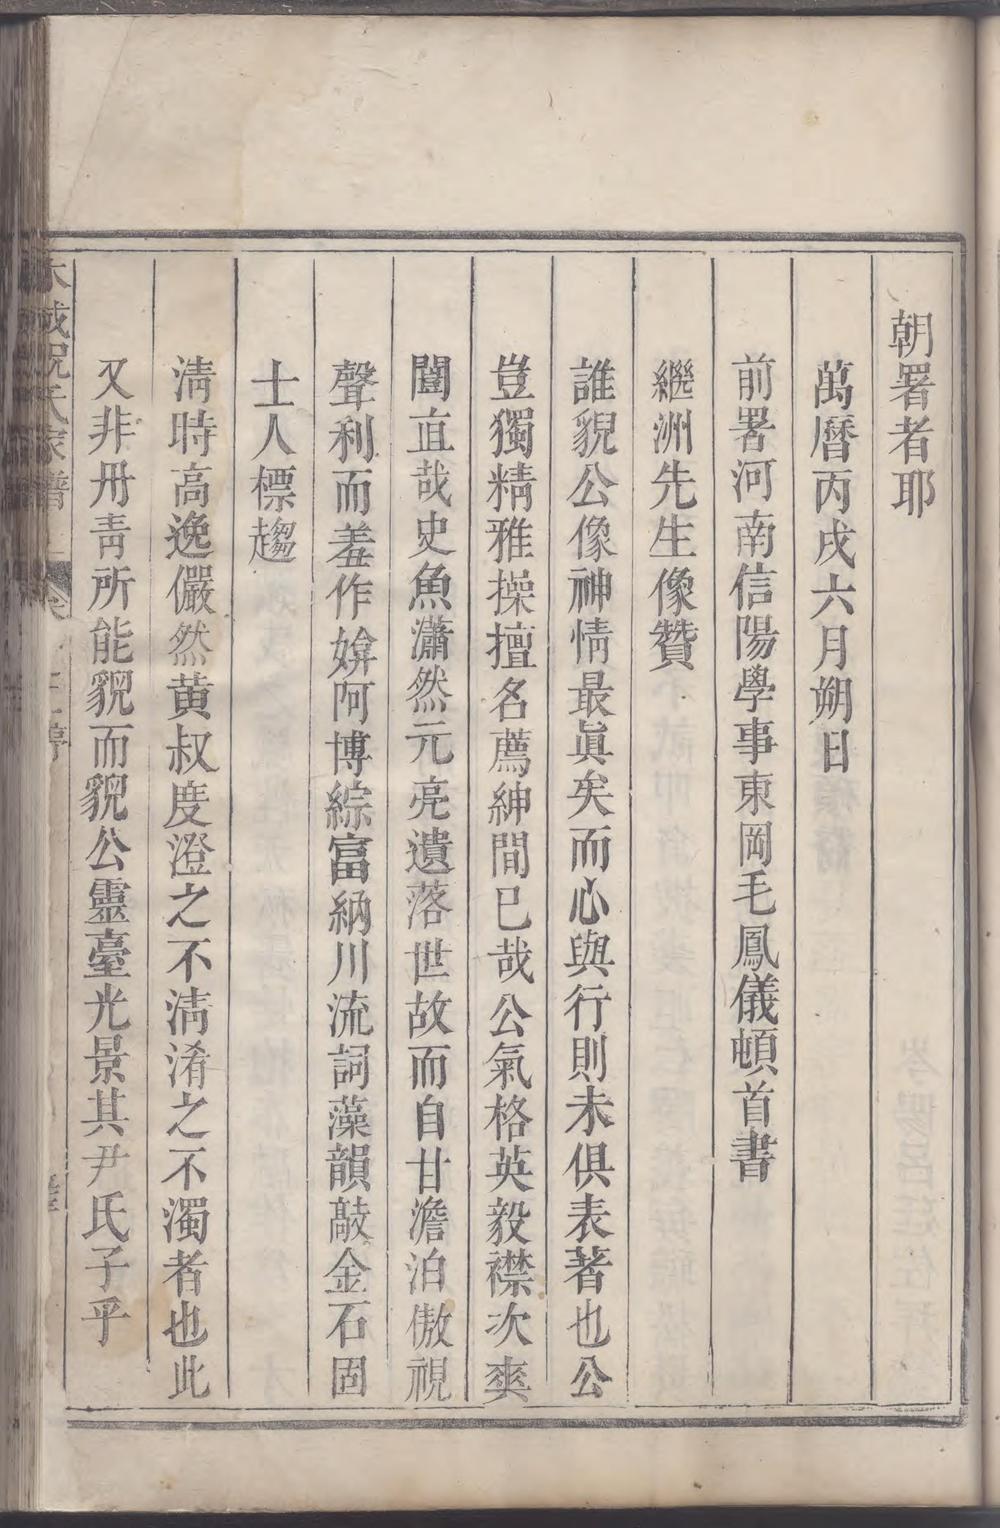 朝署者耶
萬曆丙戌六月朔日
前署河南信陽學事東岡毛鳳儀頓首書
繼洲先生像贊
誰貌公像神情最眞矣而心與行則未俱表著也公
豈獨精雅操擅名薦紳間已哉公氣格英毅襟次爽
闓直哉史魚瀟然元亮遺落世故而自甘澹泊傲視
聲利而羞作媕阿博綜富納川流詞藻韻敲金石固
士人標趨
淸時高逸儼然黃叔度澄之不淸淆之不濁者也此
又非丹靑所能貌而貌公靈臺光景其尹氏子乎
祝氏家譜